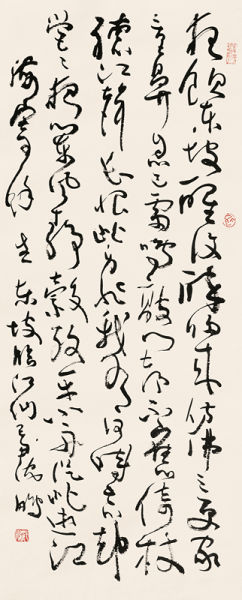 夜飲東坡醒復醉歸來仿佛三更家
童鼻息已雷鳴敲門都不應倚杖
聽江聲長恨此身非我有何時忘却
營營夜闌風靜縠紋平小舟從此逝江
海寄餘生東坡臨江仙